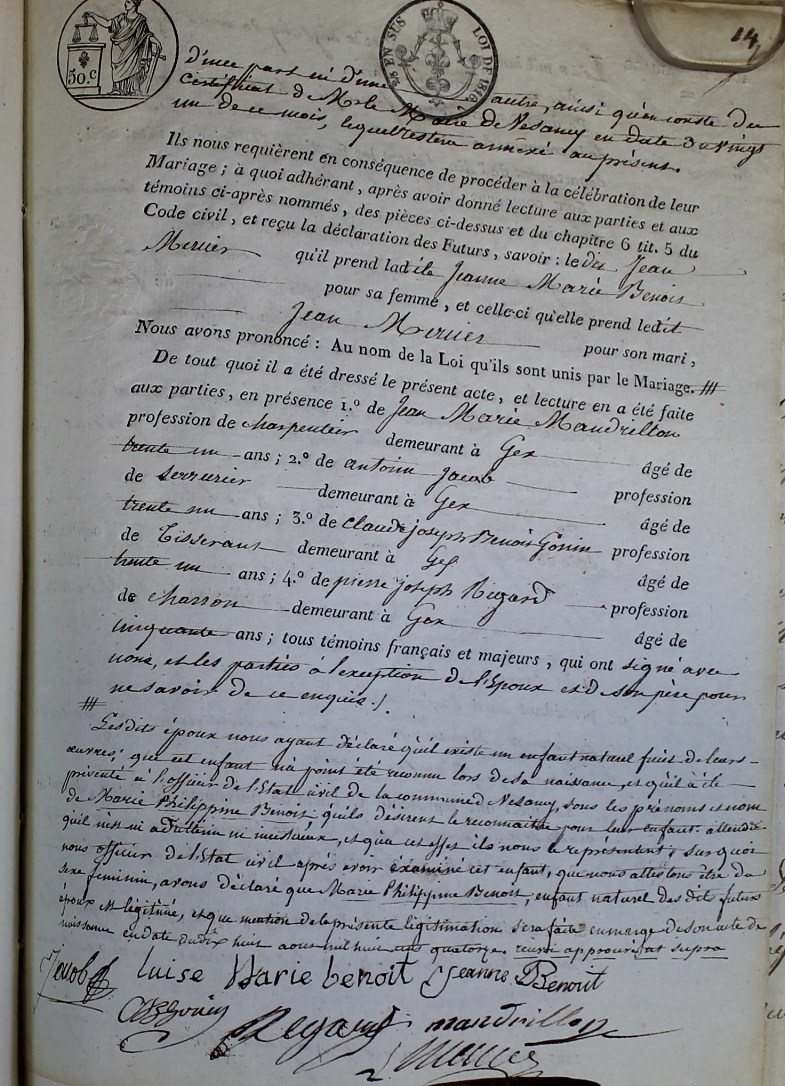 14
50. C
25 EN SUS LOI DE 1816
d'une part ni d'une autre, ainsi qu'en conste du
Certificat de Mr le Maire de Vesancy en date du vingt
un de ce mois, lequel restera annexé au présent.
Ils nous requièrent en conséquence de procéder à la célébration de leur
Mariage ; à quoi adhérant, après avoir donné lecture aux parties et aux
témoins ci-après nommés, des pièces ci-dessus et du chapitre 6 tit. 5 du
Code civil, et reçu la déclaration des Futurs, savoir : le dit Jean
Mercier qu'il prend ladite Jeanne Marie Benoit
pour sa femme, et celle-ci qu'elle prend ledit
Jean Mercier pour son mari,
Nous avons prononcé : Au nom de la Loi qu'ils sont unis par le Mariage. #
De tout quoi il a été dressé le présent acte, et lecture en a été faite
aux parties, en présence 1.° de Jean Marie Mandrillon
profession de charpentier demeurant à Gex âgé de
trente un ans ; 2.° de antoine Jacob profession
de Serrurier demeurant à Gex âgé de
trente un ans ; 3.° de Claude joseph Benoit Gonin profession
de Tisserant demeurant à Gex âgé de
trente un ans ; 4.° de pierre joseph Regard profession
de charron demeurant à Gex âgé de
cinquante ans ; tous témoins français et majeurs, qui ont signé avec
nous, et les parties à l'exception de l'Epoux et de son père pour
ne savoir de ce enquis ./.
# Lesdits époux nous ayant déclaré qu'il existe un enfant naturel fruit de leurs
œuvres, que cet enfant n'a point été reconnu lors de sa naissance, et qu'il a été
présenté à l'officier de l'Etat civil de la commune de Vesancy, sous les prénoms et nom
de Marie Philippine Benoit qu'ils désirent le reconnaitre pour leur enfant. attendu
qu'il n'est ni adultérin ni incestueux, et qu'à cet effet ils nous le représentent, sur quoi
nous officier de l'Etat civil après avoir examiné cet enfant, que nous attestons être du
sexe féminin, avons déclaré que Marie Philippine Benoit, enfant naturel des dits futurs
époux est légitimée, et que mention de la présente légitimation sera faite en marge de son acte de
naissance en date du dix huit aout mil huit cent quatorze. renvoi approuvé supra
Jacob Luise Marie benoit Jeanne Benoit
Regard mandrillon